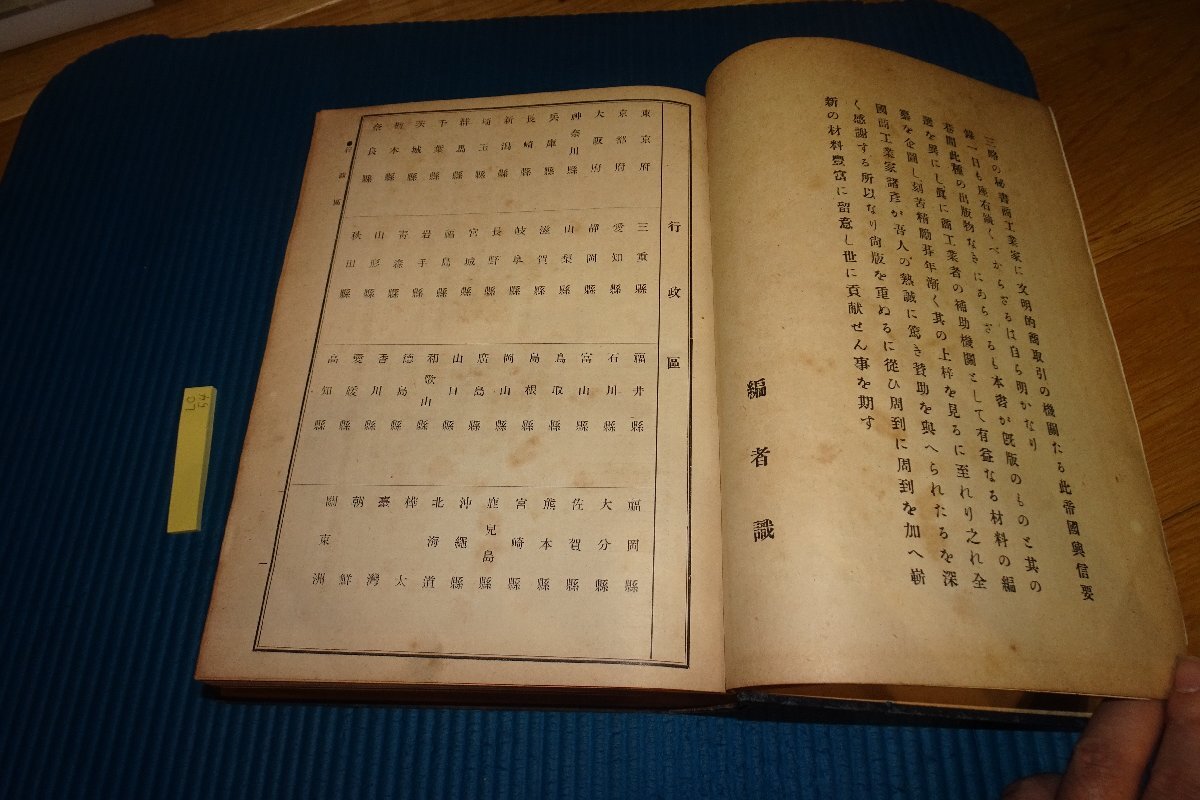 三略の秘書商工業家に文明的商取引の機關たる此帝國興信要
錄一日も座右缺くべからざるは自ら明かなり
巷間此種の出版物なきにあらざらし本書が旣版のものと其の
選を異にし眞に商工業者の補助機關として有益なる材料の編
纂を企圖し刻苦精勵茲年漸く其の上梓を見るに至れり之れ全
國商工業家諸彦が吾人の熱誠に篤き賛助を與へられたるを深
く感謝する所以なり尙版を重ぬるに從ひ周到に周到を加へ嶄
新の材料豐富に留意し世に貢献せん事を期す
編者識
行政區
東京府
京都府
大阪府
神奈川縣
兵庫縣
長崎縣
新潟縣
埼玉縣
群馬縣
千葉縣
茨城縣
栃木縣
奈良縣
三重縣
愛知縣
靜岡縣
山梨縣
滋賀縣
岐阜縣
長野縣
宮城縣
福島縣
岩手縣
靑森縣
山形縣
秋田縣
福井縣
石川縣
富山縣
鳥取縣
島根縣
岡山縣
廣島縣
山口縣
和歌山縣
德島縣
香川縣
愛媛縣
高知縣
福岡縣
大分縣
佐賀縣
熊本縣
宮崎縣
鹿兒島縣
沖繩縣
北海道
樺太
臺灣
朝鮮
關東洲
●行政區
一